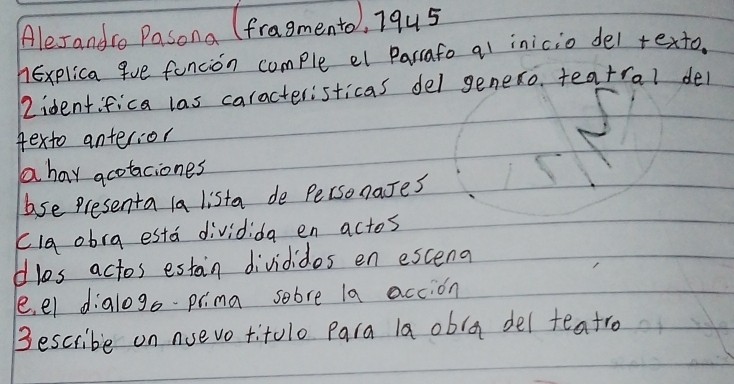 Alejandro Pasona (fragmento), 1945
1Explica que función comple el Parrafo al inicio del texto.
2identifica las caracteristicas del genero. teatral del
texto anterior
a hay acotaciones
b se presenta la lista de Personajes
c la obra está dividida en actos
d los actos están divididos en escena
e. el dialogo prima sobre la acción
3escribe un nuevo titulo Para la obra del teatro